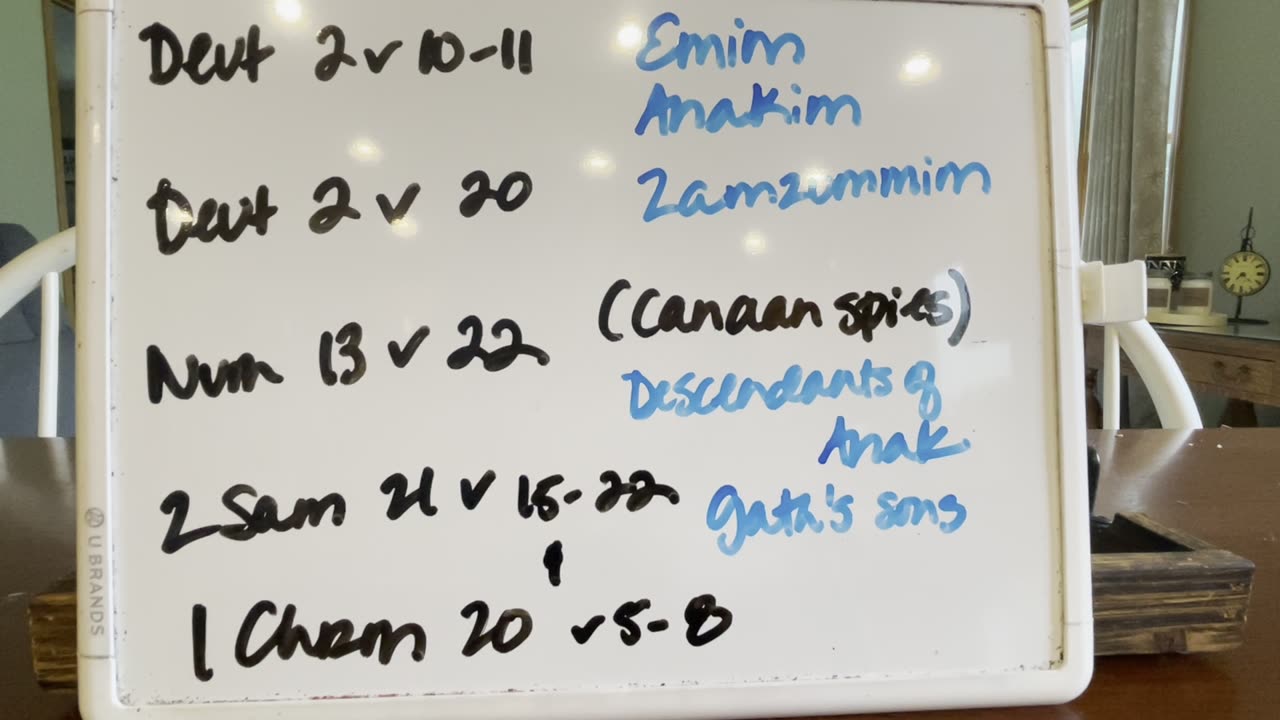 Deut 2 v 10-11 Emim
Anakim
Deut 2 v 20 Zamzummim
Num 13 v 22 (Canaan spies)
Descendants of
Anak
2 Sam 21 v 15-22 gath's sons
1 Chron 20 v 5-8
U BRANDS